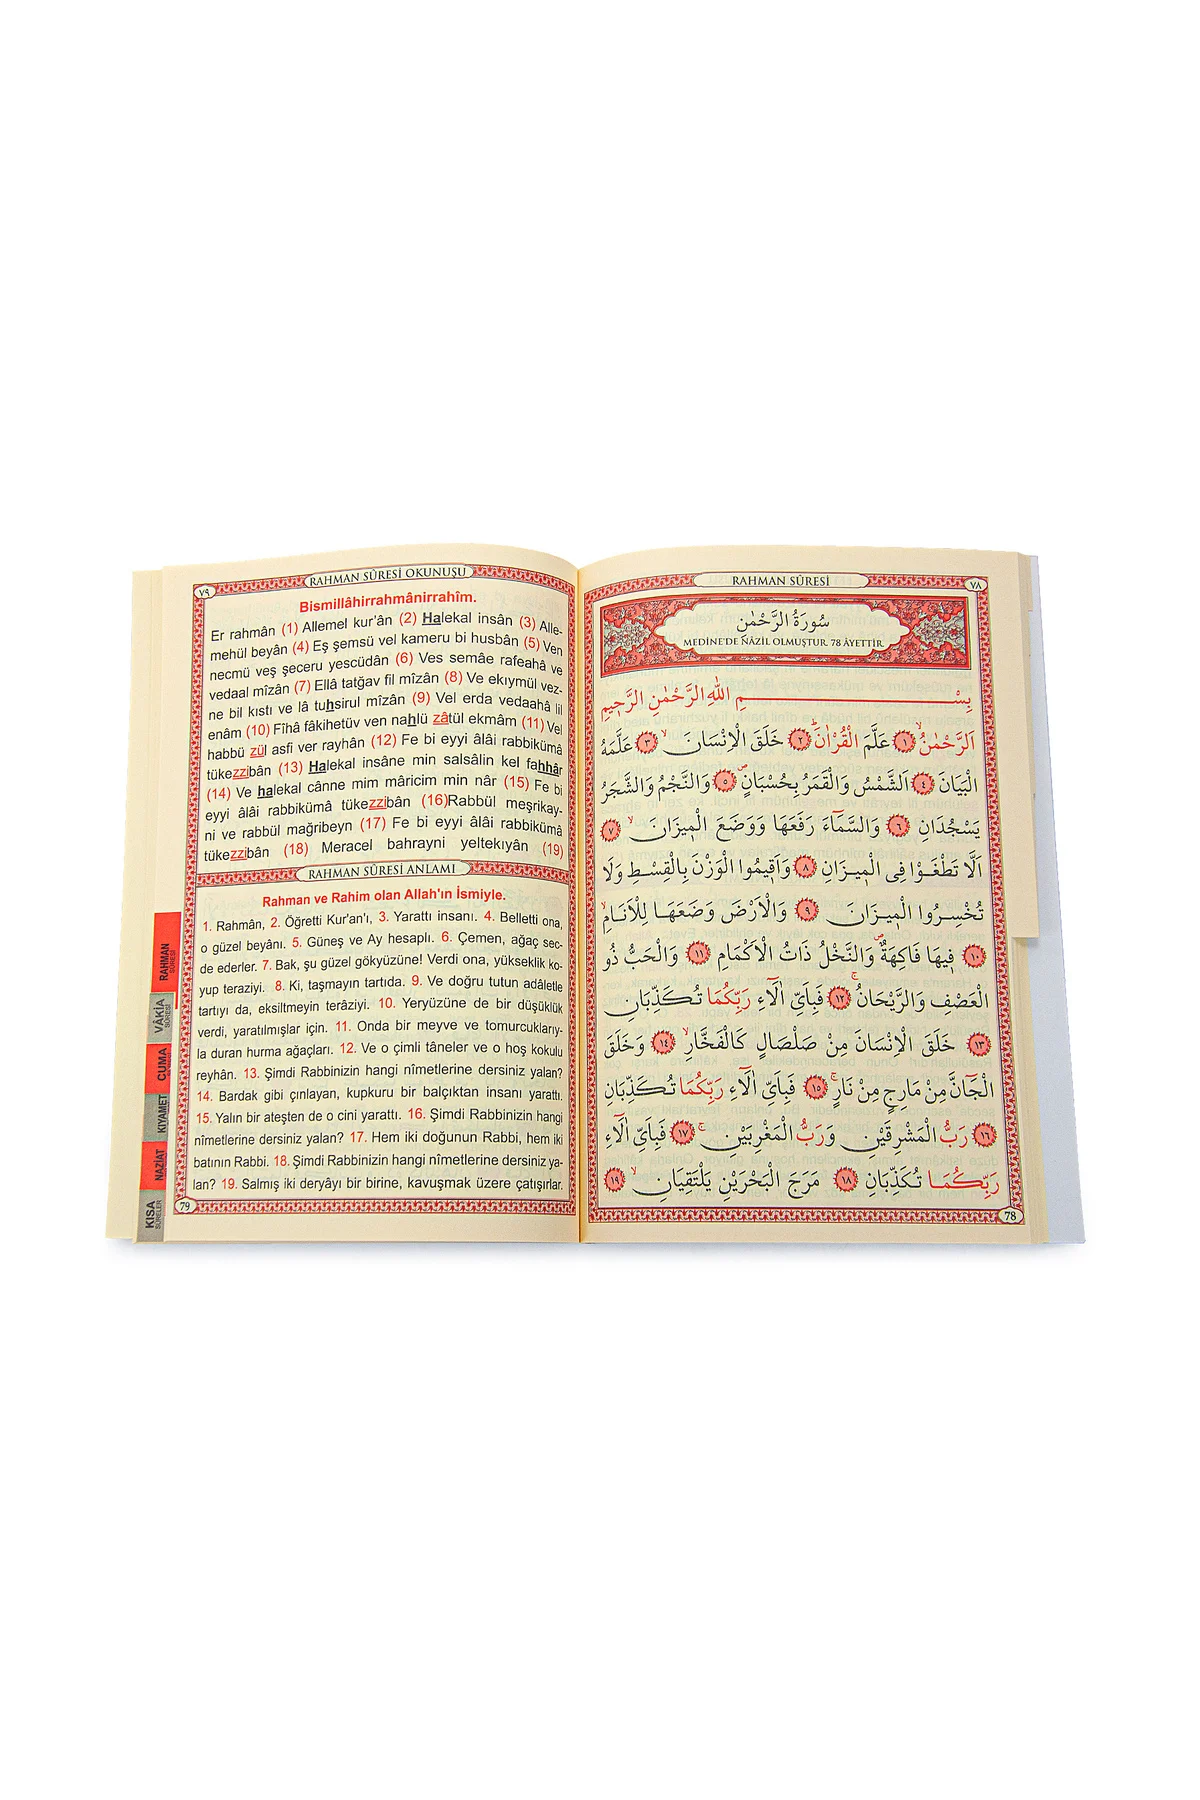 RAHMAN SÛRESİ
٧٨
سُورَةُ الرَّحْمٰنِ
MEDİNE'DE NÂZİL OLMUŞTUR. 78 ÂYETTİR.
بِسْــــــــــــــــمِ اللهِ الرَّحْمٰنِ الرَّحِيمِ
اَلرَّحْمٰنُۙ ﴿١﴾ عَلَّمَ الْقُرْاٰنَۜ ﴿٢﴾ خَلَقَ الْاِنْسَانَۙ ﴿٣﴾ عَلَّمَهُ
الْبَيَانَ ﴿٤﴾ اَلشَّمْسُ وَالْقَمَرُ بِحُسْبَانٍۖ ﴿٥﴾ وَالنَّجْمُ وَالشَّجَرُ
يَسْجُدَانِ ﴿٦﴾ وَالسَّمَٓاءَ رَفَعَهَا وَوَضَعَ الْم۪يزَانَۙ ﴿٧﴾
اَلَّا تَطْغَوْا فِي الْم۪يزَانِ ﴿٨﴾ وَاَق۪يمُوا الْوَزْنَ بِالْقِسْطِ وَلَا
تُخْسِرُوا الْم۪يزَانَ ﴿٩﴾ وَالْاَرْضَ وَضَعَهَا لِلْاَنَامِۙ
﴿١٠﴾ ف۪يهَا فَاكِهَةٌۖ وَالنَّخْلُ ذَاتُ الْاَكْمَامِ ﴿١١﴾ وَالْحَبُّ ذُو
الْعَصْفِ وَالرَّيْحَانُۚ ﴿١٢﴾ فَبِاَيِّ اٰلَٓاءِ رَبِّكُمَا تُكَذِّبَانِ
﴿١٣﴾ خَلَقَ الْاِنْسَانَ مِنْ صَلْصَالٍ كَالْفَخَّارِۙ ﴿١٤﴾ وَخَلَقَ
الْجَٓانَّ مِنْ مَارِجٍ مِنْ نَارٍۚ ﴿١٥﴾ فَبِاَيِّ اٰلَٓاءِ رَبِّكُمَا تُكَذِّبَانِ
﴿١٦﴾ رَبُّ الْمَشْرِقَيْنِ وَرَبُّ الْمَغْرِبَيْنِۚ ﴿١٧﴾ فَبِاَيِّ اٰلَٓاءِ
رَبِّكُمَا تُكَذِّبَانِ ﴿١٨﴾ مَرَجَ الْبَحْرَيْنِ يَلْتَقِيَانِۙ ﴿١٩﴾
78
RAHMAN SÛRESİ OKUNUŞU
٧٩
Bismillâhirrahmânirrahîm.
Er rahmân (1) Allemel kur'ân (2) Halekal insân (3) Alle-
mehül beyân (4) Eş şemsü vel kameru bi husbân (5) Ven
necmü veş şeceru yescüdân (6) Ves semâe rafeahâ ve
vedaal mîzân (7) Ellâ tatğav fil mîzân (8) Ve ekıymül vez-
ne bil kıstı ve lâ tuhsirul mîzân (9) Vel erda vedaahâ lil
enâm (10) Fîhâ fâkihetüv ven nahlü zâtül ekmâm (11) Vel
habbü zül asfi ver rayhân (12) Fe bi eyyi âlâi rabbikümâ
tükezzibân (13) Halekal insâne min salsâlin kel fahhâr
(14) Ve halekal cânne mim mâricim min nâr (15) Fe bi
eyyi âlâi rabbikümâ tükezzibân (16)Rabbül meşrikay-
ni ve rabbül mağribeyn (17) Fe bi eyyi âlâi rabbikümâ
tükezzibân (18) Meracel bahrayni yeltekıyân (19)
RAHMAN SÛRESİ ANLAMI
Rahman ve Rahim olan Allah'ın İsmiyle.
1. Rahmân, 2. Öğretti Kur'an'ı, 3. Yarattı insanı. 4. Belletti ona,
o güzel beyânı. 5. Güneş ve Ay hesaplı. 6. Çemen, ağaç sec-
de ederler. 7. Bak, şu güzel gökyüzüne! Verdi ona, yükseklik ko-
yup teraziyi. 8. Ki, taşmayın tartıda. 9. Ve doğru tutun adâletle
tartıyı da, eksiltmeyin terâziyi. 10. Yeryüzüne de bir düşüklük
verdi, yaratılmışlar için. 11. Onda bir meyve ve tomurcuklarıy-
la duran hurma ağaçları. 12. Ve o çimli tâneler ve o hoş kokulu
reyhân. 13. Şimdi Rabbinizin hangi nîmetlerine dersiniz yalan?
14. Bardak gibi çınlayan, kupkuru bir balçıktan insanı yarattı.
15. Yalın bir ateşten de o cini yarattı. 16. Şimdi Rabbinizin hangi
nîmetlerine dersiniz yalan? 17. Hem iki doğunun Rabbi, hem iki
batının Rabbi. 18. Şimdi Rabbinizin hangi nîmetlerine dersiniz ya-
lan? 19. Salmış iki deryâyı bir birine, kavuşmak üzere çatışırlar.
79
RAHMAN
SÛRESİ
VÂKIA
SÛRESİ
CUMA
KIYAMET
NAZİAT
KISA
SÛRELER